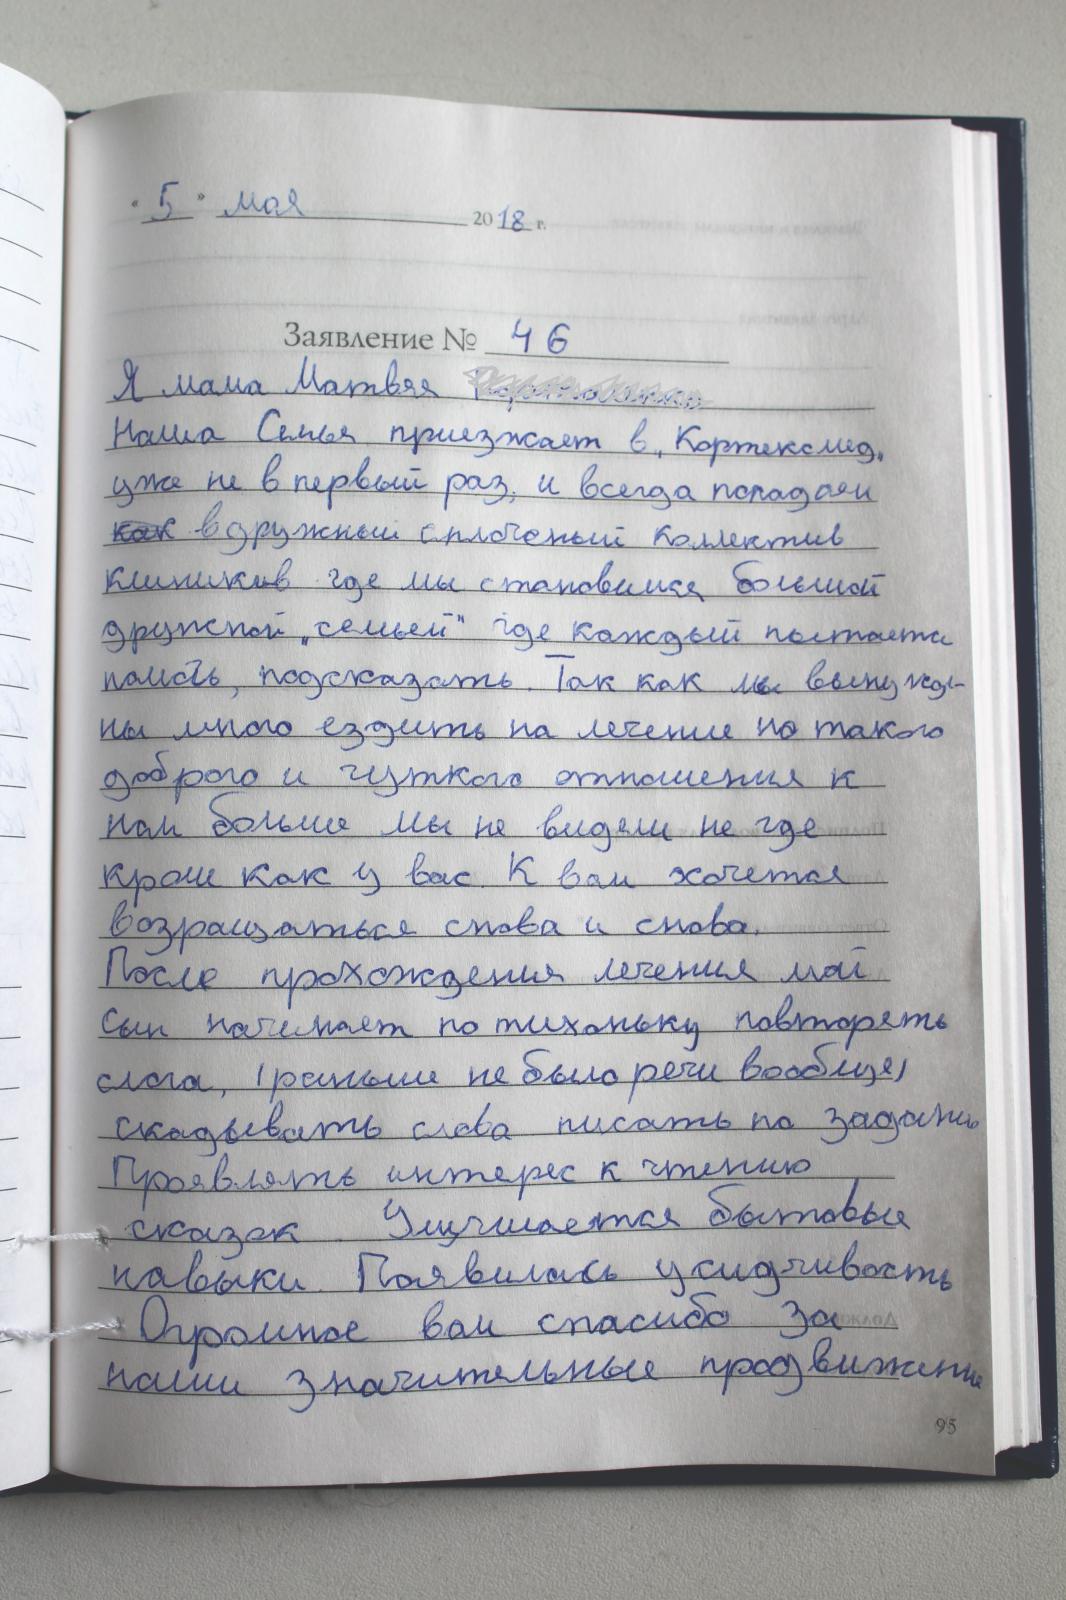 « 5 » мая 2018 г.
Заявление № 46
Я мама Матвея
Наша Семья приезжает в „Кортексмед„
уже не в первый раз, и всегда попадаем
как в дружный сплоченый коллектив
клиники где мы становимся большой
дружной „семьей" где каждый пытается
помочь, подсказать. Так как мы вынужде-
ны много ездить на лечение но такого
доброго и чуткого отношения к
нам больше мы не видели не где
кроме как у вас. К вам хочется
возращаться снова и снова.
После прохождения лечения мой
сын начинает по тихоньку повторять
слога, (раньше не было речи вообще)
складывать слова писать по заданию
Проявлять интерес к чтению
сказок. Улучшается бытовые
навыки. Появилась усидчивость
Огромное вам спасибо за
наши значительные продвижение
95